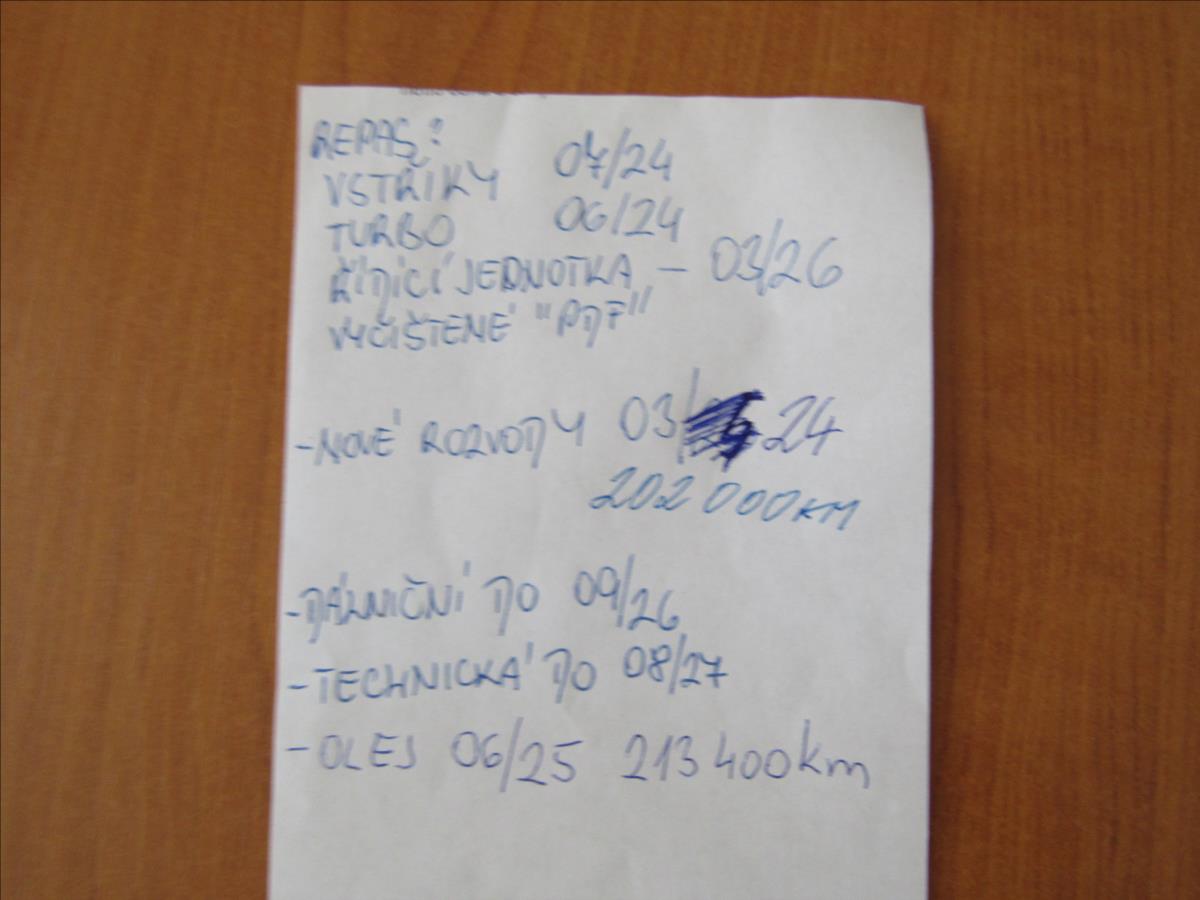 REPAS?
VSTŘIKY 07/24
TURBO 06/24
ŘÍDÍCÍ JEDNOTKA – 03/26
VYČIŠTENÉ "PDF"
-NOVÉ ROZVODY 03/ 24
202 000KM
-DÁLNIČNÍ DO 09/26
-TECHNICKÁ DO 08/27
-OLEJ 06/25 213 400km